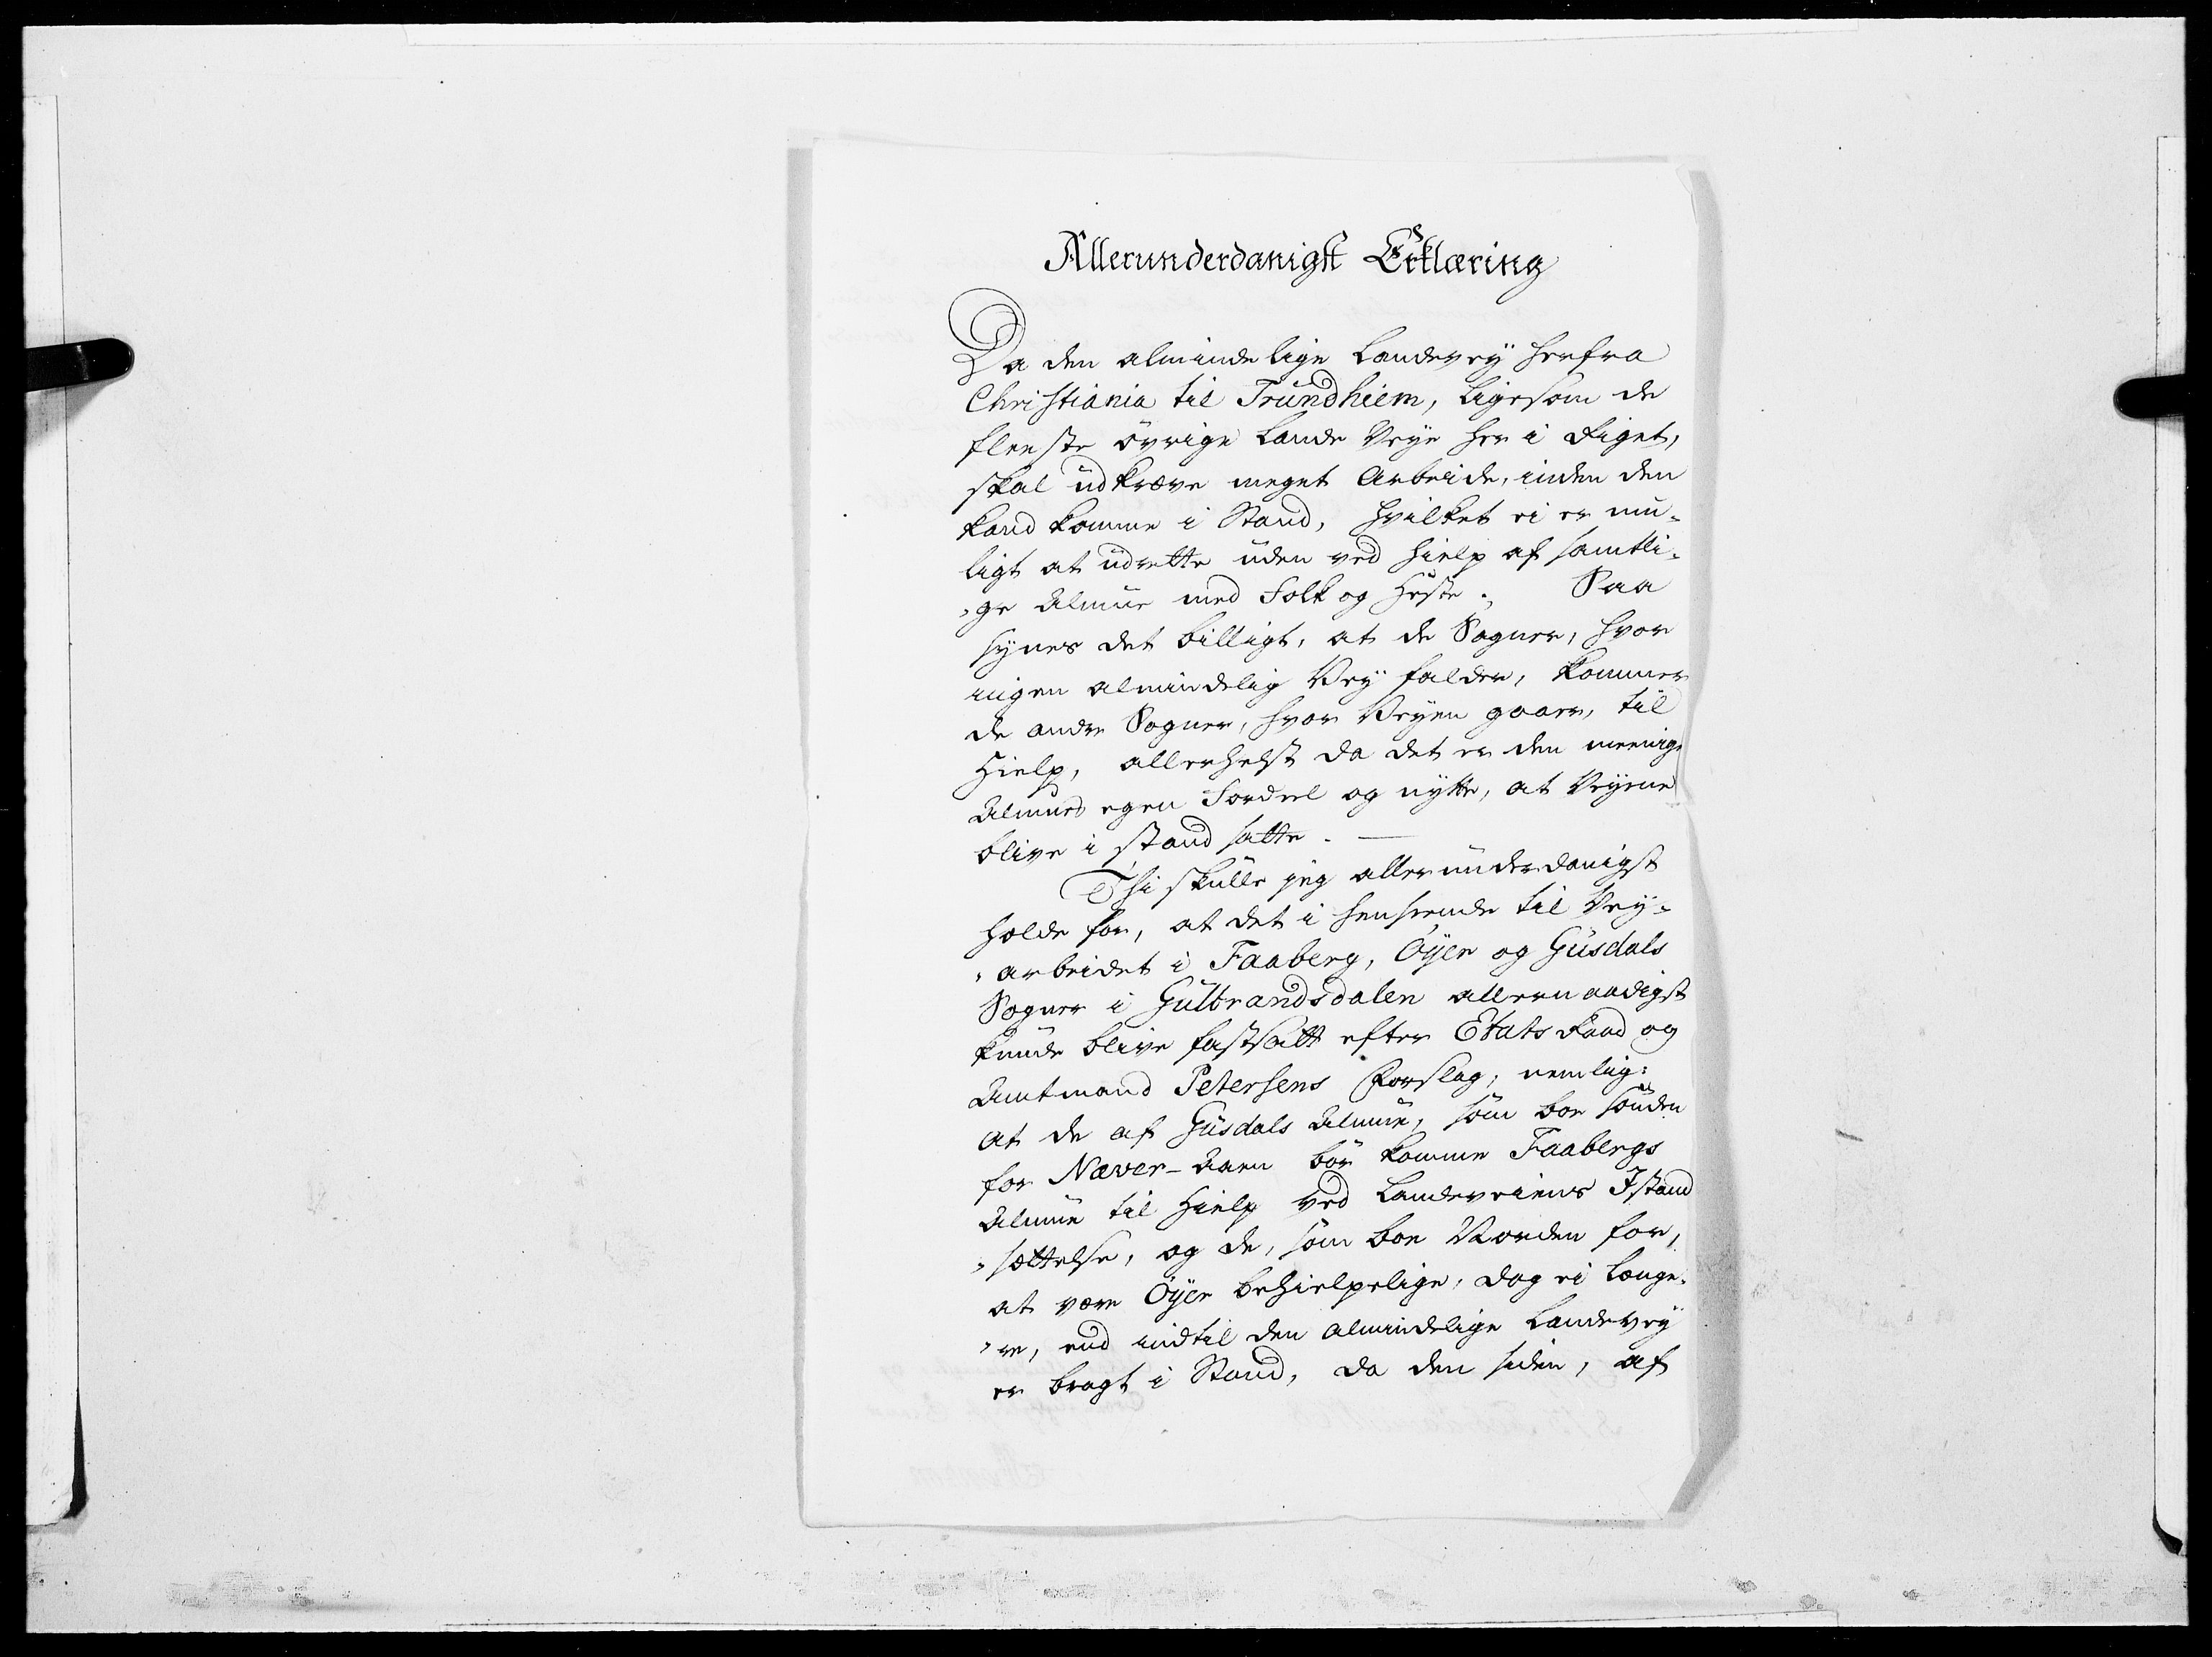 Allerunderdanigst Erklæring
Da den almindelige Landevey herfra
Christiania til Trundhiem, ligesom de
fleeste övrige Lande Veye her i Riget,
skal udkræve meget Arbeide, inden den
kand komme i Stand, hvilket ei er mu-
ligt at udrette uden ved Hielp af samtli-
ge Almue med Folk og Heste. Saa
synes det billigt, at de Sogner, hvor
ingen almindelig Vey falder, kommer
de andre Sogner, hvor Veyen gaaer, til
Hielp, allerhelst da det er den meenige
Almues egen Fordeel og nytte, at Veyene
blive i stand satte. —
Thi skulle jeg allerunderdanigst
holde for, at det i henseende til Vey-
arbeidet i Faaberg, Öyer og Gusdals
Sogner i Gulbrandsdalen allernaadigst
kunde blive fastsatt efter Etats Raad og
Amtmand Petersens Forslag, nemlig:
at de af Gusdals Almue, som boe sönden
for Næver-Aaen bör komme Faabergs
Almue til Hielp ved Landeveiens Istand
sættelse, og de, som boe Norden for,
at være Öyer behielpelige, dog ei længe-
re, end indtil den almindelige Landevey
er bragt i Stand, da den siden, af